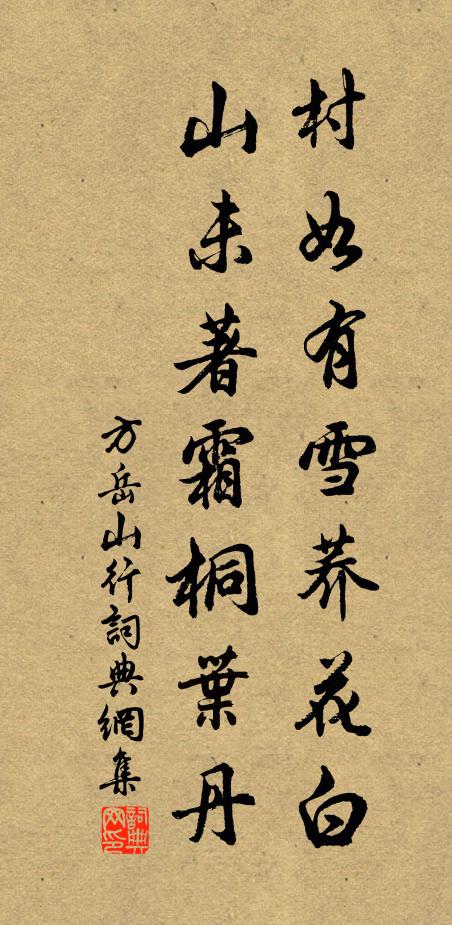 村如有雪荞花白
山未著霜桐葉丹
方岳山行詞典網集
詞典网印